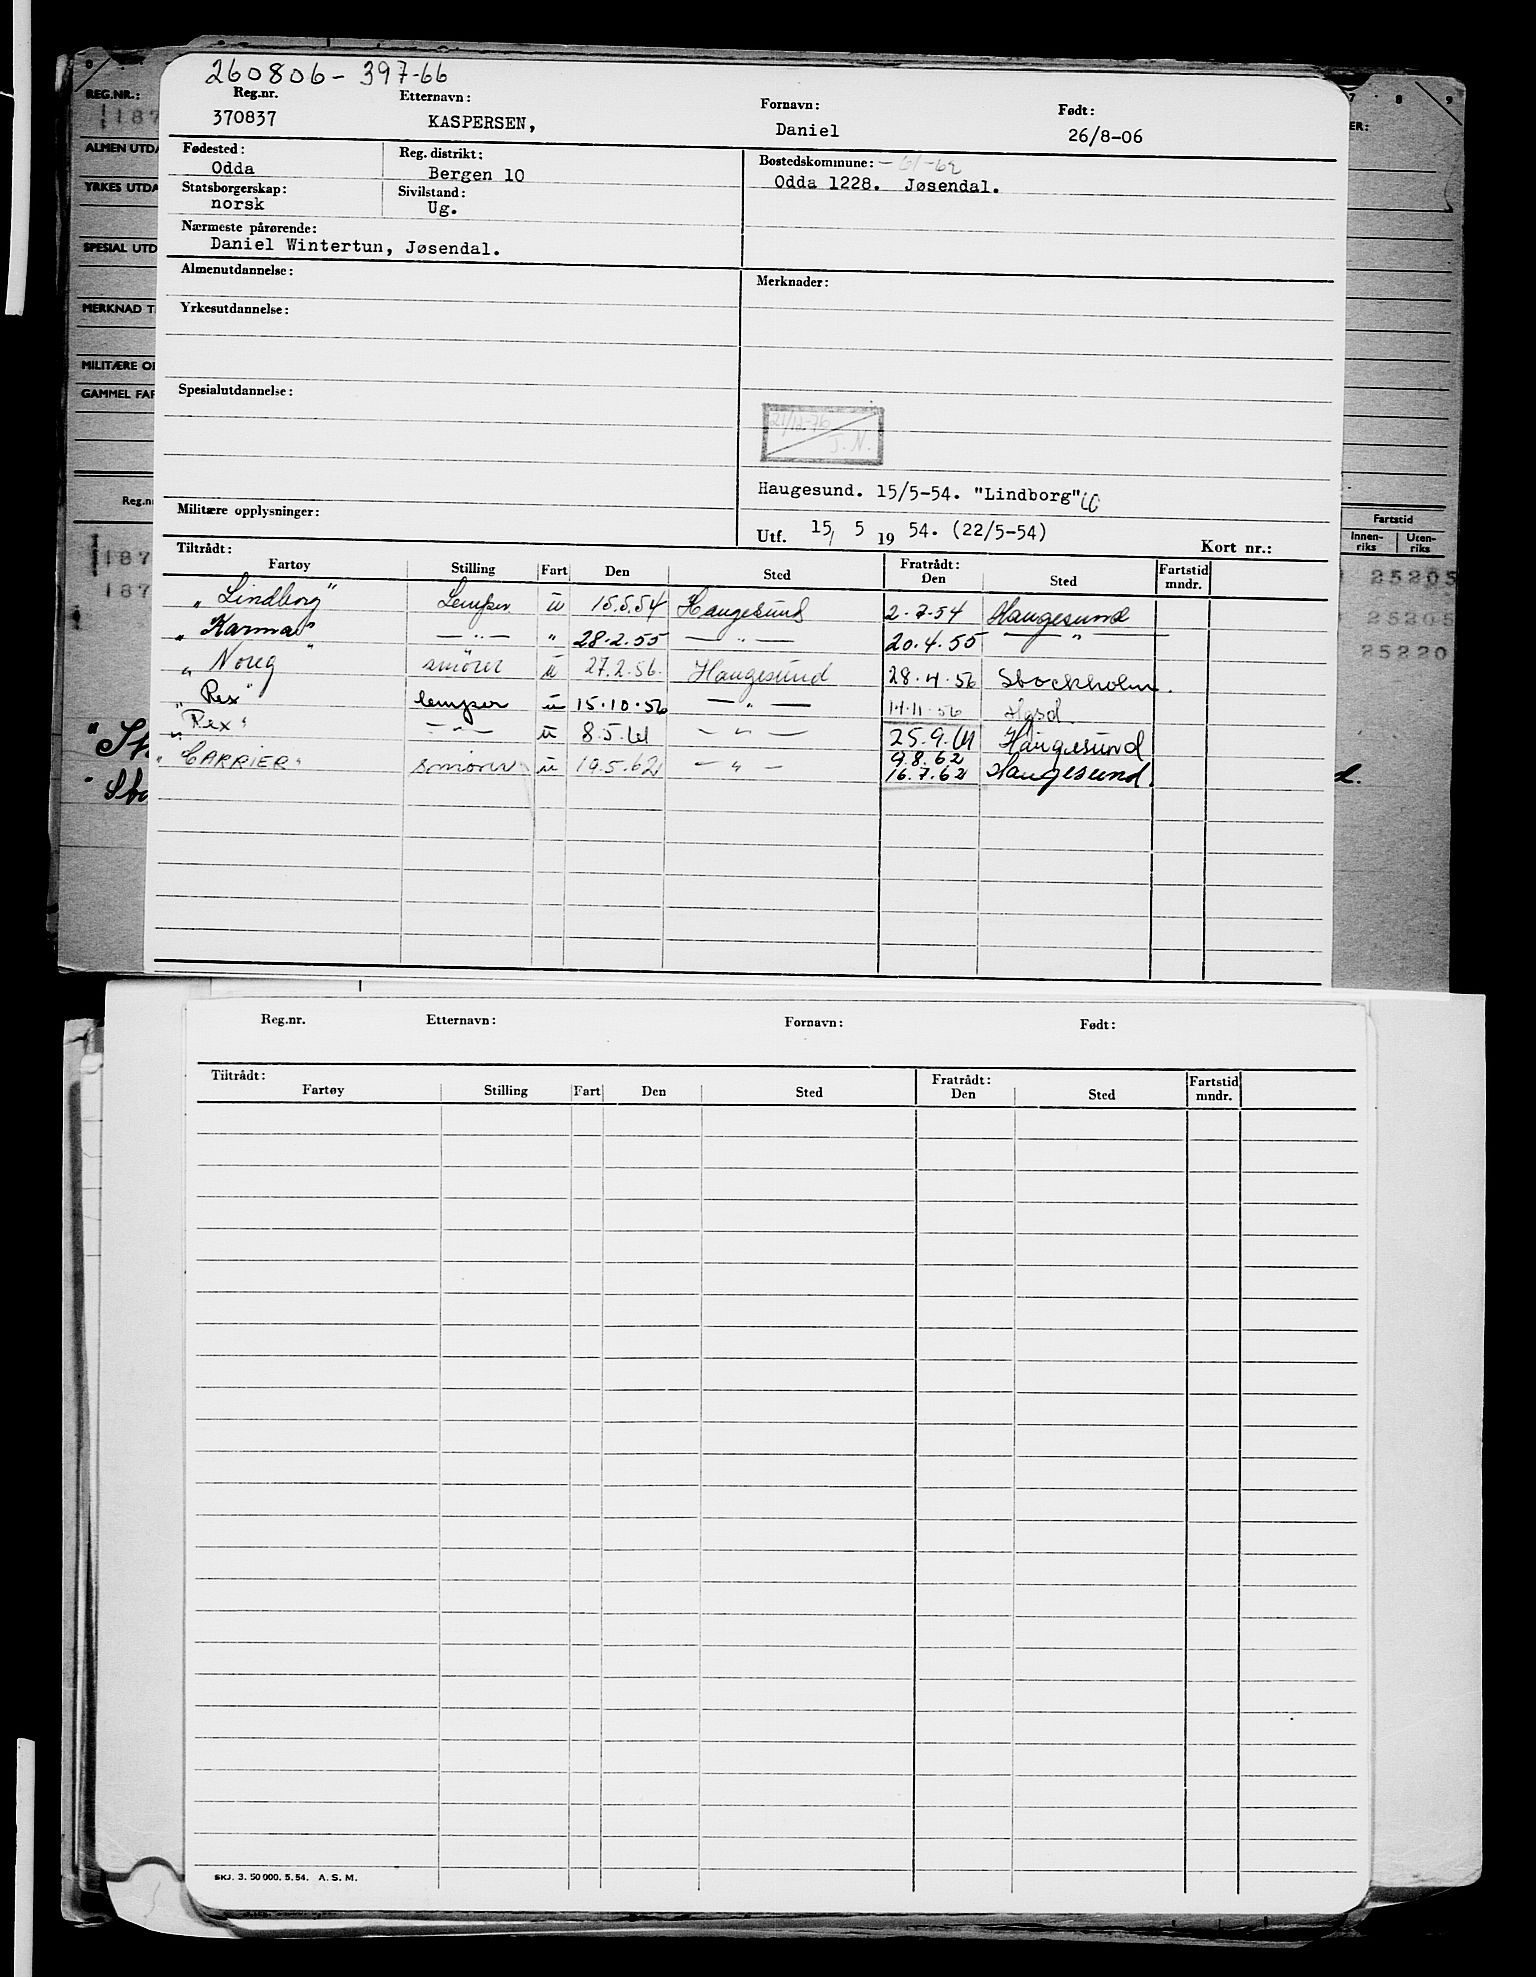 260806-397-66
Reg.nr. Etternavn: Fornavn: Født:
370837 KASPERSEN, Daniel 26/8-06
Fødested: Reg. distrikt: Bostedskommune: -61-62
Odda Bergen 10 Odda 1228. Jøsendal.
Statsborgerskap: Sivilstand:
norsk Ug.
Nærmeste pårørende:
Daniel Wintertun, Jøsendal.
Almenutdannelse: Merknader:
Yrkesutdannelse:
Spesialutdannelse:
21/12-76
J.N.
Haugesund. 15/5-54. "Lindborg"
Militære opplysninger: Utf. 15/ 5 19 54. (22/5-54)
Kort nr.:
Tiltrådt: Fratrådt: Fartstid
Fartøy Stilling Fart Den Sted Den Sted mndr.
"Lindborg" Lemper u 15.5.54 Haugesund 2.7.54 Haugesund
"Karma" — " — " 28.2.55 — " — 20.4.55 — " —
"Noreg" smører u 27.2.56. Haugesund 28.4.56 Stockholm.
"Rex" lemper u 15.10.56 — " — 14.11.56 Hgsd.
"Rex" — " — u 8.5.61 — " — 25.9.61 Haugesund
9.8.62
"CARRIER" smører u 19.5.62 — " — 16.7.62 Haugesund.
REG.NR.:
187
ALMEN UTDA
YRKES UTDA
SPESIAL UTD
MERKNAD T
MILITÆRE O
GAMMEL FAR
Reg.n
187
187
7 8 9
ER:
Fartstid
Innen-riks Uten-riks
25205
25205
25220
d.
Reg.nr. Etternavn: Fornavn: Født:
Tiltrådt: Fratrådt: Fartstid
Fartøy Stilling Fart Den Sted Den Sted mndr.
SKJ. 3. 50 000. 5. 54. A. S. M.